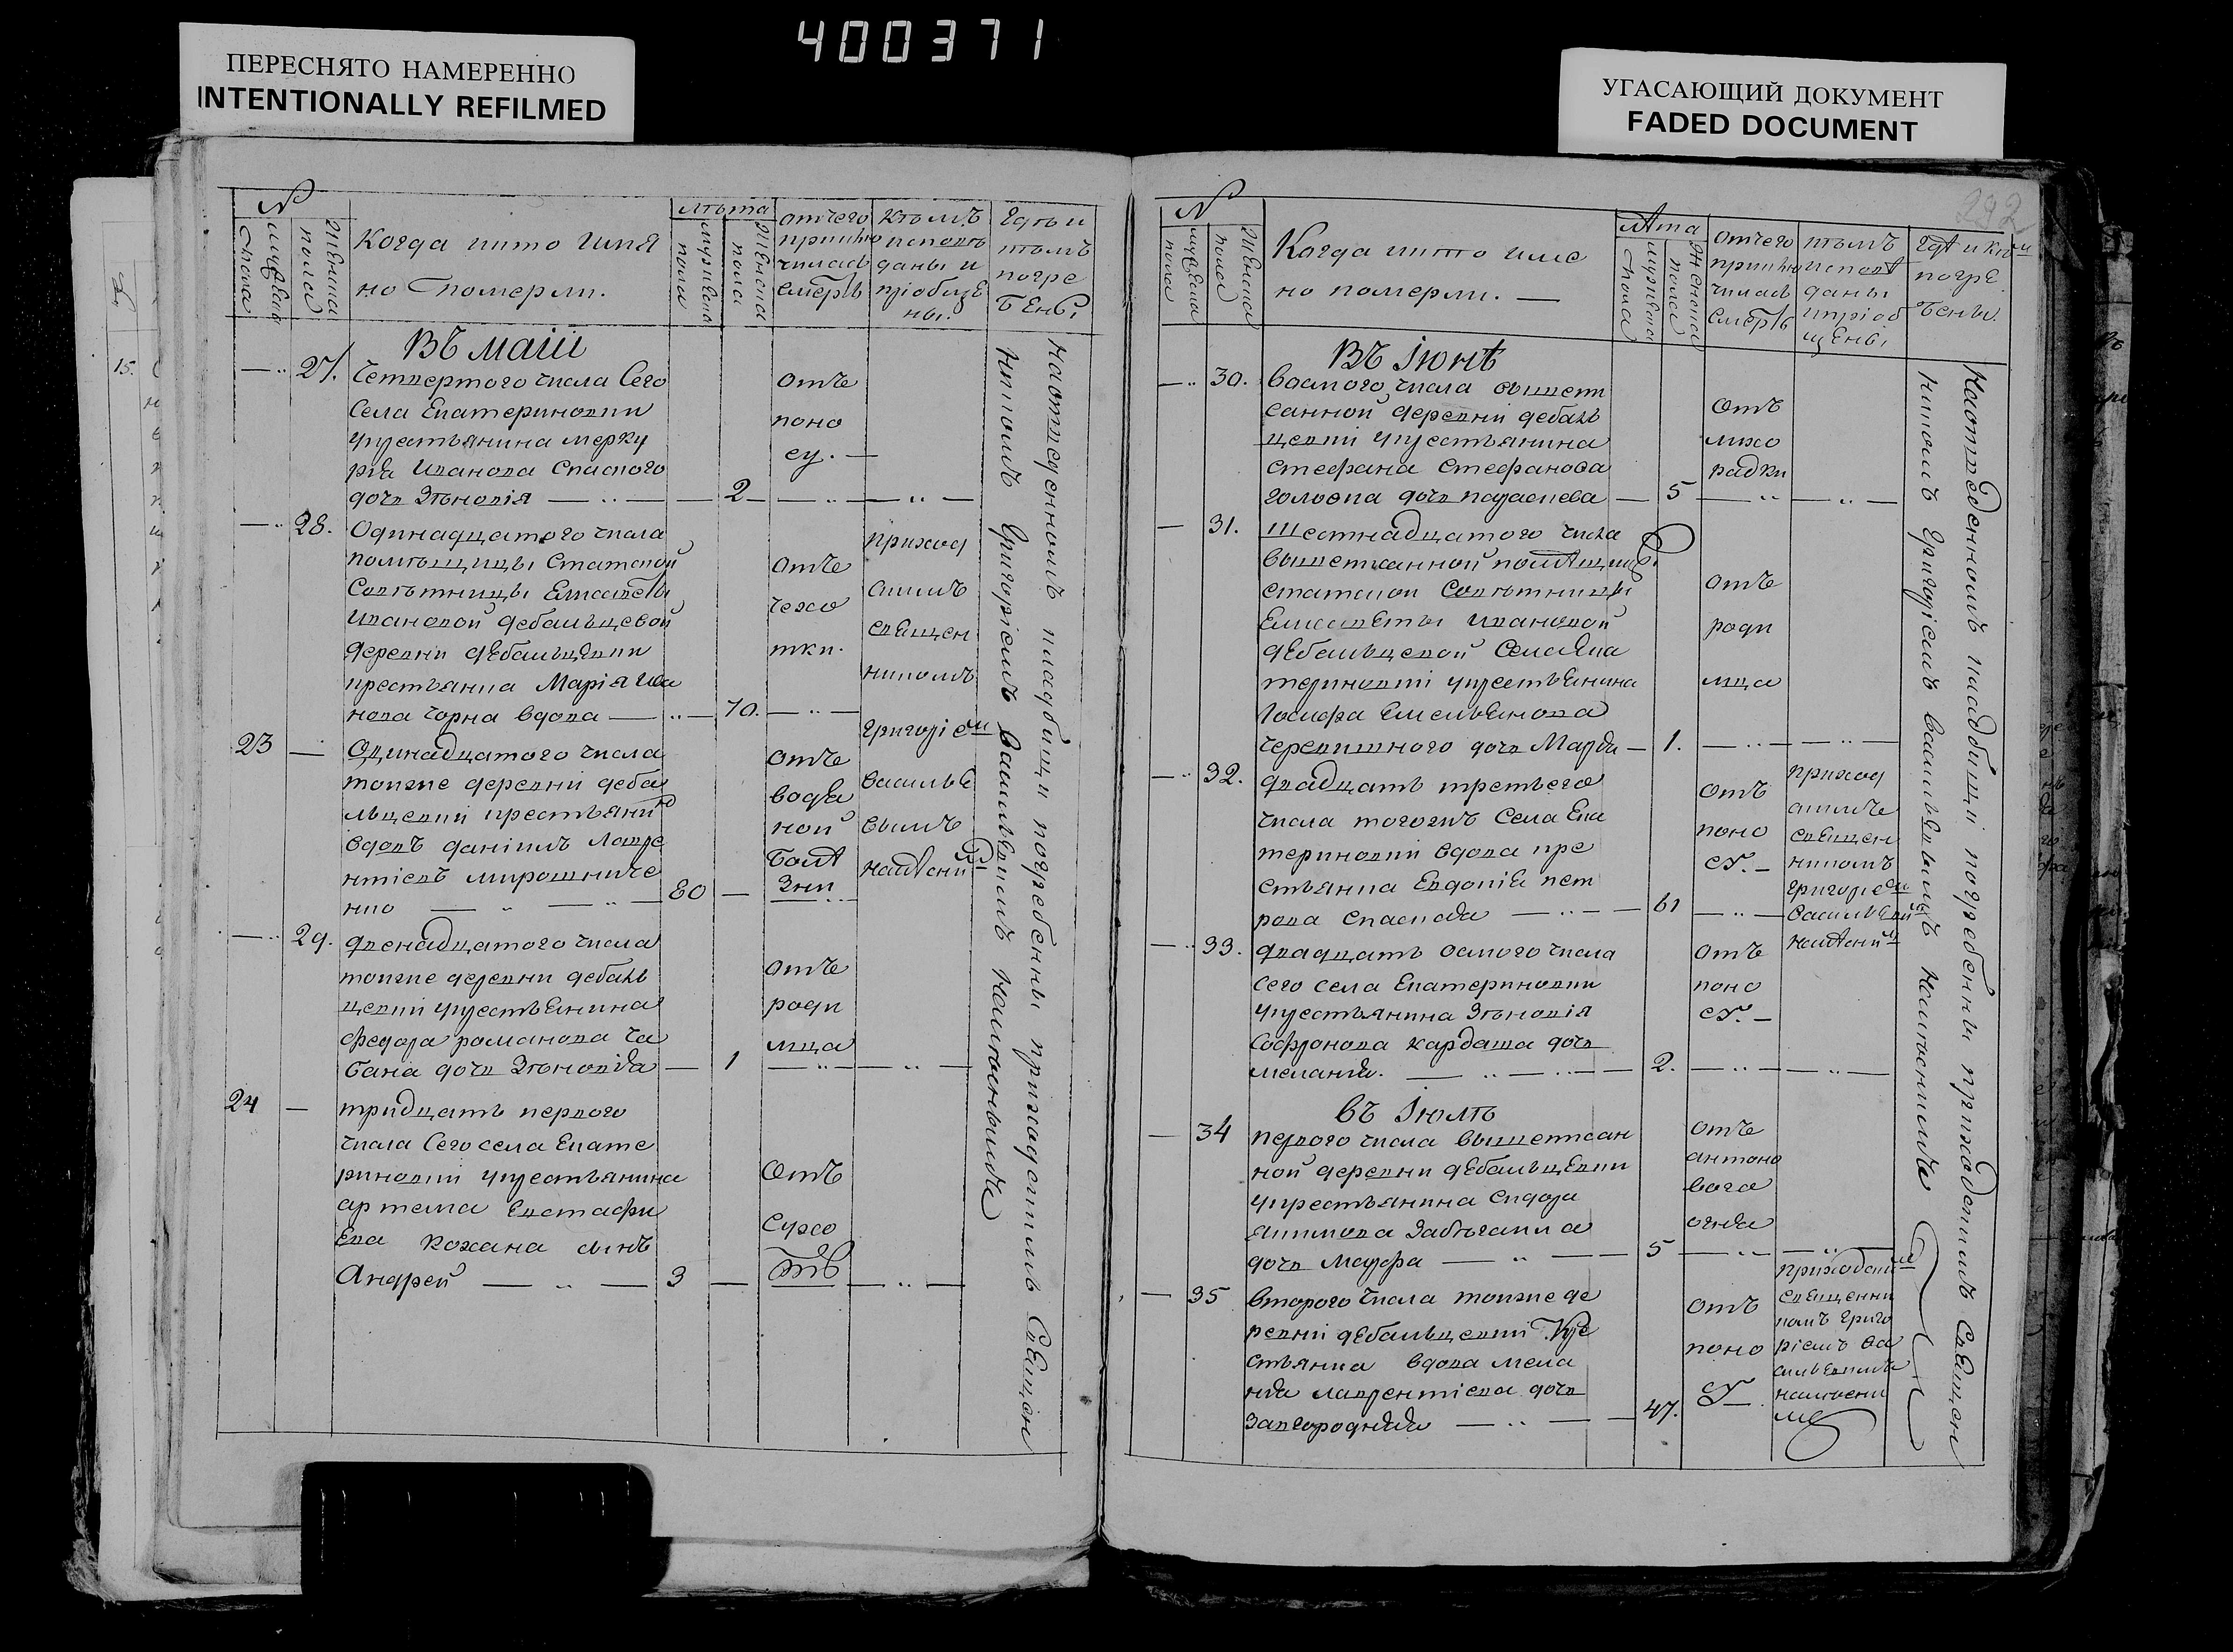 400371
ПЕРЕСНЯТО НАМЕРЕННО
INTENTIONALLY REFILMED
УГАСАЮЩИЙ ДОКУМЕНТ
FADED DOCUMENT
№
мужеска пола
женска пола
Когда и кто имя
но померли.
лѣта
мужеска пола
женска пола
от чего
приключ
чилась
смерть
кѣмъ
исповѣ
даны и
пріобще
ны.
Гдѣ и
кѣмъ
погре
бены
Въ маіи
27. Четвертого числа Сего
Села Екатериновки
крестьянина мерку
рія Иванова Спаского
дочь Зѣновія 2
отъ
коко
су.
28. Одинадцатого числа
помѣщицы Статской
Совѣтницы Елисаветы
Ивановой дебальцевой
деревни дебальцевки
крестьянка Марія Ива
нова чорна вдова 70.
отъ
чехо
тки.
приход
скимъ
священ
никомъ
23 Одинадцатого числа
тоиже деревни деба
льцевки крестьянин
вдовъ даніилъ Лавре
нтіевъ мирошниче
нко 80
отъ
водя
ной
болѣ
зни
Григоріем
василье
вымъ
29. двенадцатого числа
тоиже деревни дебаль
цевки крестьянина
федора романова ча
бана дочь Зѣновія 1
отъ
роди
мца
24 тридцать первого
числа Сего села Екате
риновки крестьянина
артема Евстафи
ева кохана сынъ
Андрей 3
отъ
сухо
ты
На отведенномъ кладбищи погребенны приходскимъ Священ
никомъ Григоріемъ Васильевимъ
292
№
мужеска пола
женска пола
Когда и кто име
но померли.
лѣта
мужеска пола
женска пола
от чего
приключ
чилась
смерть
кѣмъ
исповѣ
даны
и пріоб
щены
гдѣ и кѣм
погре
бены.
Въ Іюнѣ
30. восмого числа вышепи
санной деревни дебаль
цевки крестьянина
стефана стефанова
голосна дочь 5
отъ
лихо
радки
31. шестнадцатого числа
вышеписанной помѣщицы
статской совѣтницы
Елисаветы ивановой
дебальцевой Села Ека
териновки крестьянина
Іосифа Емельянова
дочь Марфа 1.
отъ
роди
мца
32. двадцать третьего
числа тогожъ Села Ека
териновки вдова кре
стьянка Евдокія пет
рова Спаскова 61
отъ
коко
су.
приход
скимъ
священ
никомъ
григоріем
33. двадцать осмого числа
сего села Екатериновки
крестьянина Зѣновія
Софронова кардаша дочь
меланія. 2.
отъ
коко
су.
въ Іюлѣ
34 первого числа вышеписан
ной деревни дебальцевки
крестьянина сидора
акимова
дочь Марфа 5
отъ
антоно
вого
огня
35 второго числа тоиже де
ревни дебальцевки Кре
стьянка вдова мела
нія лаврентіева дочь
47.
отъ
коко
су
приходским
священни
комъ Григо
ріемъ ва
сильевимъ
На отведенномъ кладбищи погребенны приходскимъ Священ
никомъ Григоріемъ Васильевимъ